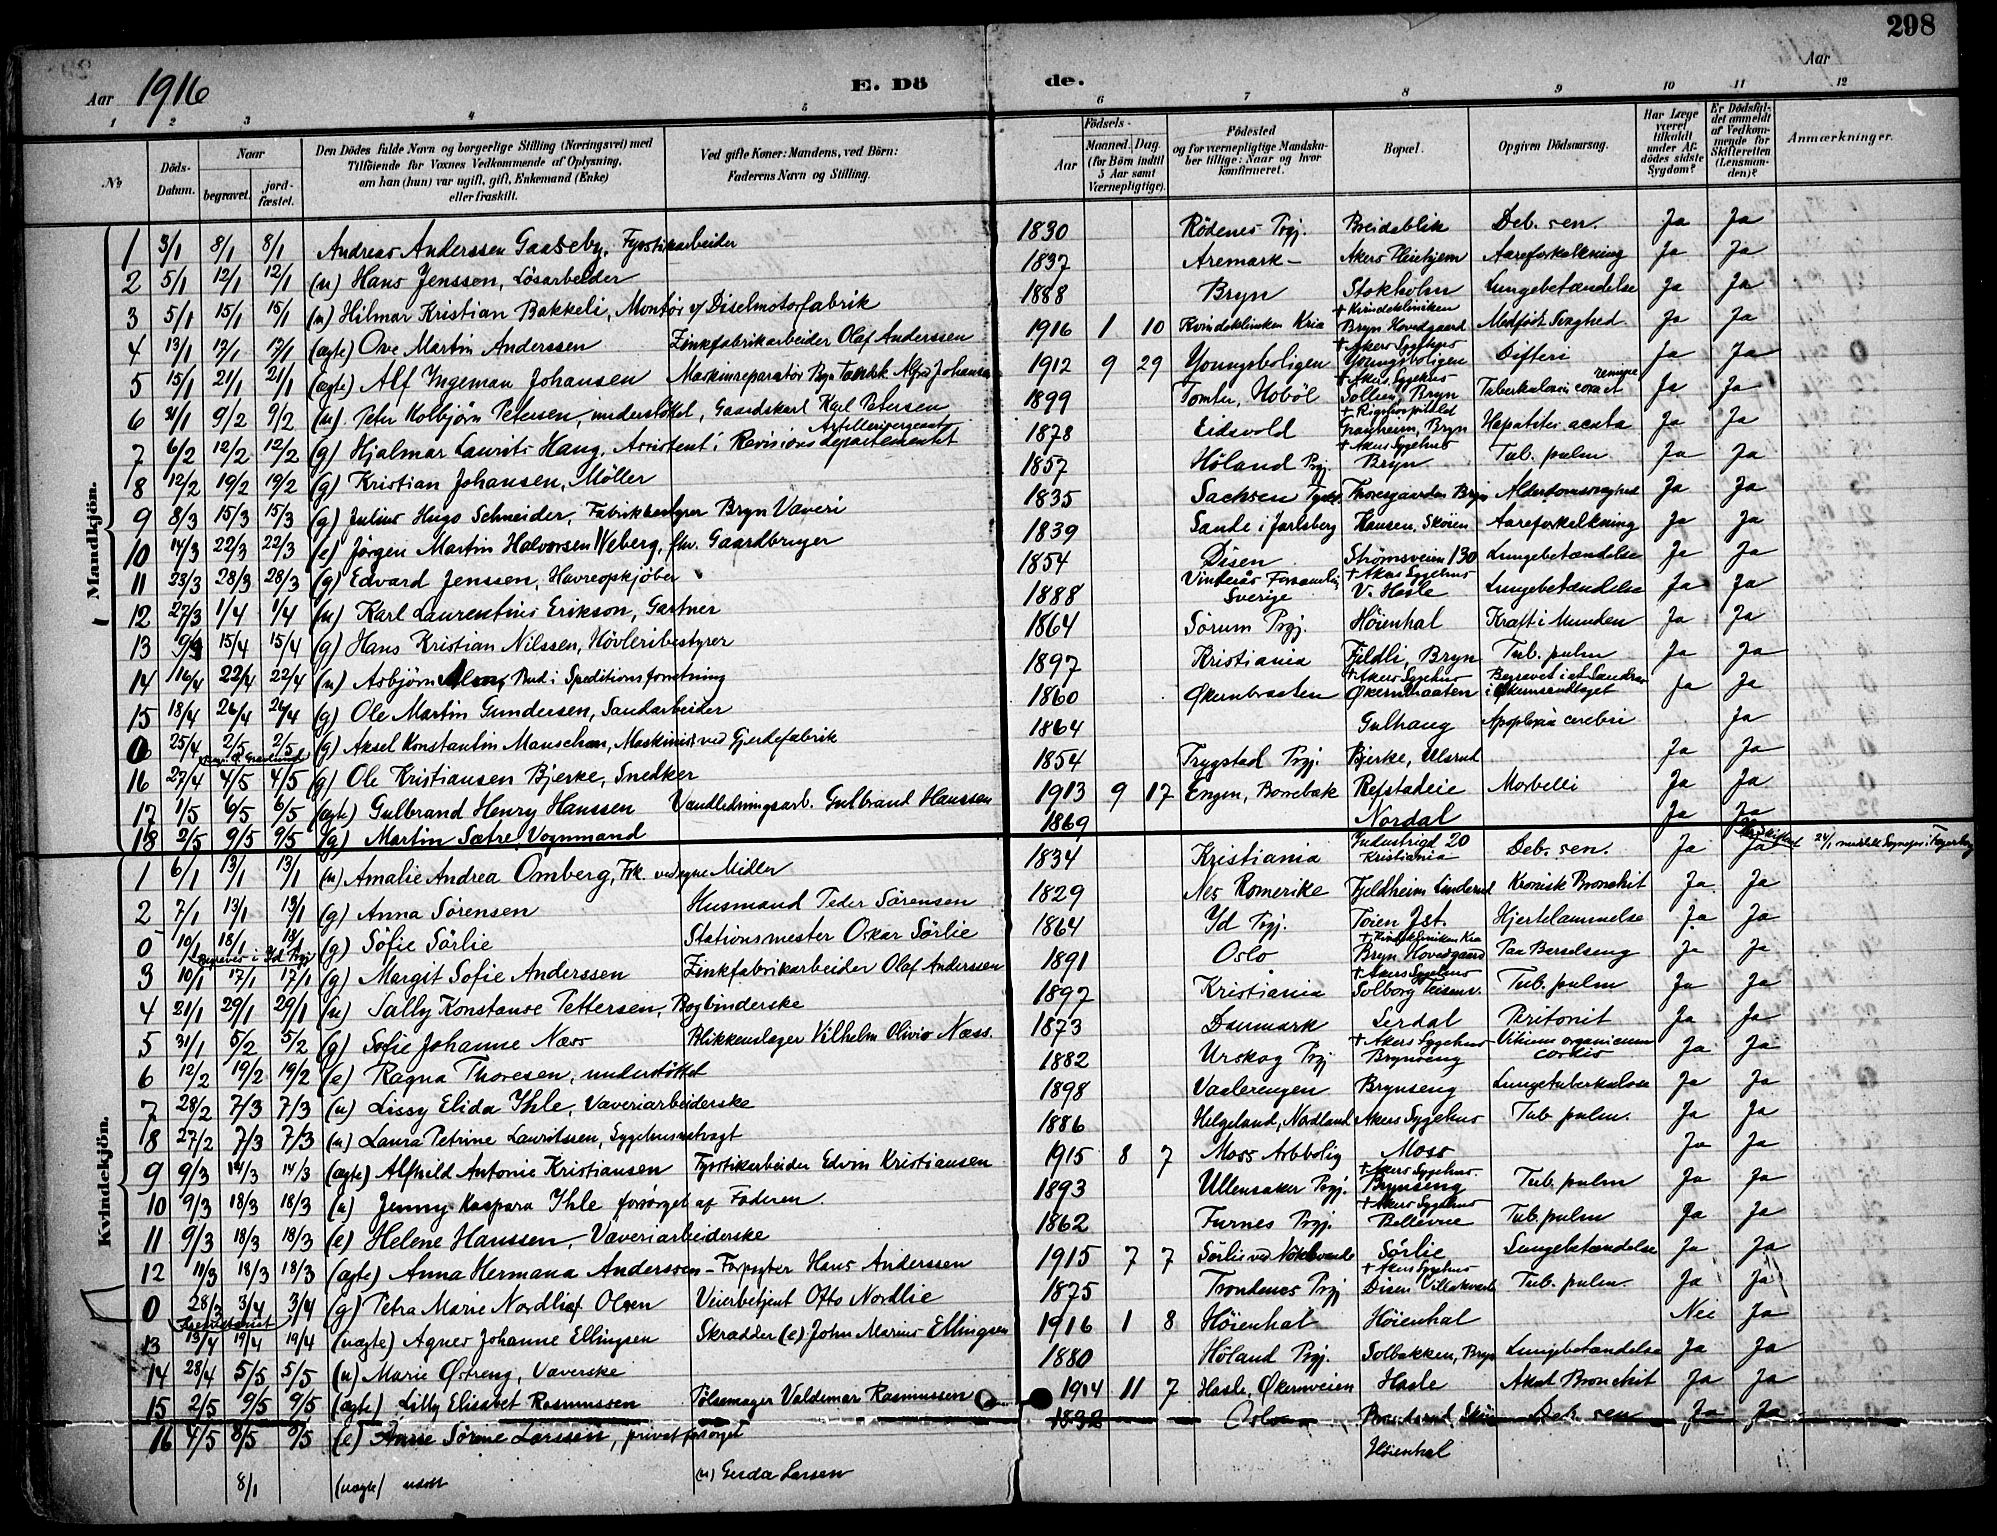 298
Aar 1916 E. Dö de. Aar
1 2 3 4 5 6 7 8 9 10 11 12
№ Döds-Datum. Naar begravet. jord-fæstet. Den Dödes fulde Navn og borgerlige Stilling (Næringsvei) med Tilföiende for Voxnes Vedkommende af Oplysning, om han (hun) var ugift, gift, Enkemand (Enke) eller fraskilt. Ved gifte Koner: Mandens, ved Börn: Faderens Navn og Stilling. Födsels- Aar Maaned. Dag. (for Börn indtil 5 Aar samt Værnepligtige). Födested og for værnepligtige Mandskaber tillige: Naar og hvor konfirmeret. Bopæl. Opgiven Dödsaarsag. Har Læge været tilkaldt under Afdödes sidste Sygdom? Er Dödsfaldet anmeldt af Vedkommende for Skifteretten (Lensmanden)? Anmærkninger.
Mandkjön.
1 3/1 8/1 8/1 Andreas Anderssen Gaaseby, Fyrstikarbeider 1830 Rödenes Prgj. Breidablik Deb. sen. Ja Ja
2 5/1 12/1 12/1 (u) Hans Jenssen, Lösarbeider 1837 Aremark Akers Pleiehjem Aareforkalkning Ja Ja
3 5/1 15/1 15/1 (u) Hilmar Kristian Bakkeli, Montör v/ Diselmotorfabrik 1888 Bryn Stokholm Lungebetændelse Ja Ja
4 13/1 17/1 17/1 (ægte) Ove Martin Anderssen Zinkfabrikarbeider Olaf Anderssen 1916 1 10 Kvindekliniken Kria + Kvindekliniken Bryn Hovedgaard Medfödt Svaghed. Ja Ja
5 15/1 21/1 21/1 (ægte) Alf Ingeman Johansen Maskinreparatör Bryn Alfred Johansen 1912 9 29 Youngsboligen + Akers Sygehus Youngsboligen Difteri Ja Ja
6 31/1 9/2 9/2 (u) Peter Kolbjörn Petersen, understöttet, Gaardskarl Karl Petersen 1899 Tomter, Hobøl + Akers Sygehus Sollien, Bryn Ja Ja
7 6/2 12/2 12/2 (g) Hjalmar Laurits Haug, Assistent i Revisionsdepartementet Artillerisergeant 1878 Eidsvold + Rigshospitalet Granheim, Bryn Hepatites acuta Ja Ja
8 12/2 19/2 19/2 (g) Kristian Johansen, Möller 1857 Höland Prgj. + Akers Sygehus Bryn Tub. pulm. Ja Ja
9 8/3 15/3 15/3 (g) Julius Hugo Schneider, Fabrikbestyrer Bryn Væveri 1835 Sachsen Thoresgaarden Bryn Alderdomssvaghed Ja Ja
10 14/3 22/3 22/3 (e) Jørgen Martin Halvorsen Weberg, fhv. Gaardbruger 1839 Sande i Jarlsberg Hansen, Skøien Aareforkalkning Ja Ja
11 23/3 28/3 28/3 (g) Edvard Jenssen, Havreopkjöber 1854 Disen Strømsveien 130 Lungebetændelse Ja Ja
12 27/3 1/4 1/4 (u) Karl Laurentius Erikson, Gartner 1888 Vinterås Sverige + Akers Sygehus V. Hasle Lungebetændelse Ja Ja
13 15/4 15/4 (g) Hans Kristian Nilssen, Hövleribestyrer 1864 Sörum Prgj. Höienhal Kræft i Munden Ja Ja
14 16/4 22/4 22/4 (u) Asbjörn Alm, Bud i Speditionsforretning 1897 Kristiania Fjeldli, Bryn Tub. pulm Ja Ja
15 18/4 26/4 26/4 (g) Ole Martin Gundersen, Sandarbeider 1860 Økernbraaten + Akers Sygehus Økernbraaten Begravet i et Sandras i Økernsandtaget Ja Ja
0 25/4 2/5 2/5 (g) Aksel Konstantin Mauschan, Maskinist ved Gjerdefabrik 1864 Gulhaug Apoplexia cerebri Ja
16 27/4 4/5 4/5 (g) Ole Kristiansen Bjerke, Snedker 1854 Trygstad Prgj. Bjerke, Ulsrud Ja Ja
17 1/5 6/5 6/5 (ægte) Gulbrand Henry Hanssen Vandledningsarb. Gulbrand Hanssen 1913 9 17 Engen, Borrebæk Refstadeie Morbelli Ja Ja
18 2/5 9/5 9/5 (g) Martin Sætre, Vognmand 1869 Nordal Ja Ja
Kvindekjön.
1 6/1 13/1 13/1 (u) Amalie Andrea Omberg, Frk. ved egne Midler 1834 Kristiania Industrigd. 20 Kristiania Deb. sen. Ja Ja
2 7/1 13/1 13/1 (g) Anna Sörensen Husmand Peder Sörensen 1829 Nes Romerike Fjeldheim Linderud Kronisk Bronchit Ja Ja
0 10/1 18/1 18/1 Begraves i Id Prgj (g) Sofie Sörlie Stationsmester Oskar Sörlie 1864 Id Prgj. Töien Jst. Hjertelammelse Ja Ja
3 10/1 17/1 17/1 (g) Margit Sofie Anderssen Zinkfabrikarbeider Olaf Anderssen 1891 Oslo + Kvindekliniken Kra Bryn Hovedgaard Paa Barselseng Ja Ja
4 21/1 29/1 29/1 (u) Sally Konstanse Pettersen, Bogbinderske 1897 Kristiania + Akers Sygehus Solborg Teisenv. Tub. pulm Ja Ja
5 31/1 5/2 5/2 (g) Sofie Johanne Næss Blikkenslager Vilhelm Olivio Næss. 1873 Danmark Lerdal Peritonit Ja Ja
6 12/2 19/2 19/2 (e) Ragna Thoresen, understöttet 1882 Urskog Prgj + Akers Sygehus Brynseng Vitium organicum cordis Ja Ja
7 28/2 7/3 7/3 (u) Lissy Elida Ihle, Væveriarbeiderske 1898 Vaalerengen Brynseng Lungetuberkulose Ja Ja
8 27/2 7/3 7/3 (u) Laura Petrine Lauritssen, 1886 Helgeland, Nordland Akers Sygehus Tub. pulm. Ja Ja
9 9/3 14/3 14/3 (ægte) Alfhild Antonie Kristiansen Fyrstikarbeider Edvin Kristiansen 1915 8 7 Moss Arbbolig Moss Ja Ja
10 9/3 18/3 18/3 (u) Jenny Kaspara Ihle forsörget af Faderen. 1893 Ullensaker Prgj. + Akers Sygehus Brynseng Tub. pulm Ja Ja
11 9/3 18/3 18/3 (e) Helene Hanssen, Væveriarbeiderske 1862 Furnes Prgj. + Akers Sygehus Bellevue Tub. pulm Ja Ja
12 11/3 18/3 18/3 (ægte) Anna Hermana Anderssen - Forpagter Hans Anderssen 1915 7 7 Sörlie ved Nöklevande Sörlie Lungebetændelse Ja Ja
0 28/3 3/4 3/4 (g) Petra Marie Nordlie f. Olsen Veierbetjent Otto Nordlie 1875 Trondenes Prgj + Akers Sygehus Disen Tub. pulm. Ja Ja
13 13/4 19/4 19/4 (uægte) Agnes Johanne Ellingsen Skrædder (e) John Marius Ellingsen 1916 1 8 Höienhal Höienhal Nei Ja
14 28/4 5/5 5/5 (u) Marie Østreng, Væverske 1880 Höland Prgj. Solbakken, Bryn Lungebetændelse Ja Ja
15 2/5 9/5 9/5 (ægte) Lilly Elisabet Rasmussen Pölsemager Valdemar Rasmussen 1914 11 7 Hasle, Økernveien Hasle Akut Bronchit Ja Ja
16 4/5 8/5 8/5 (e) Anne Sörine Larssen, privat forsörget 1832 Oslo Deb. sen Ja Ja
8/1 (uægte) (u) Gerda Larsen Höienhal